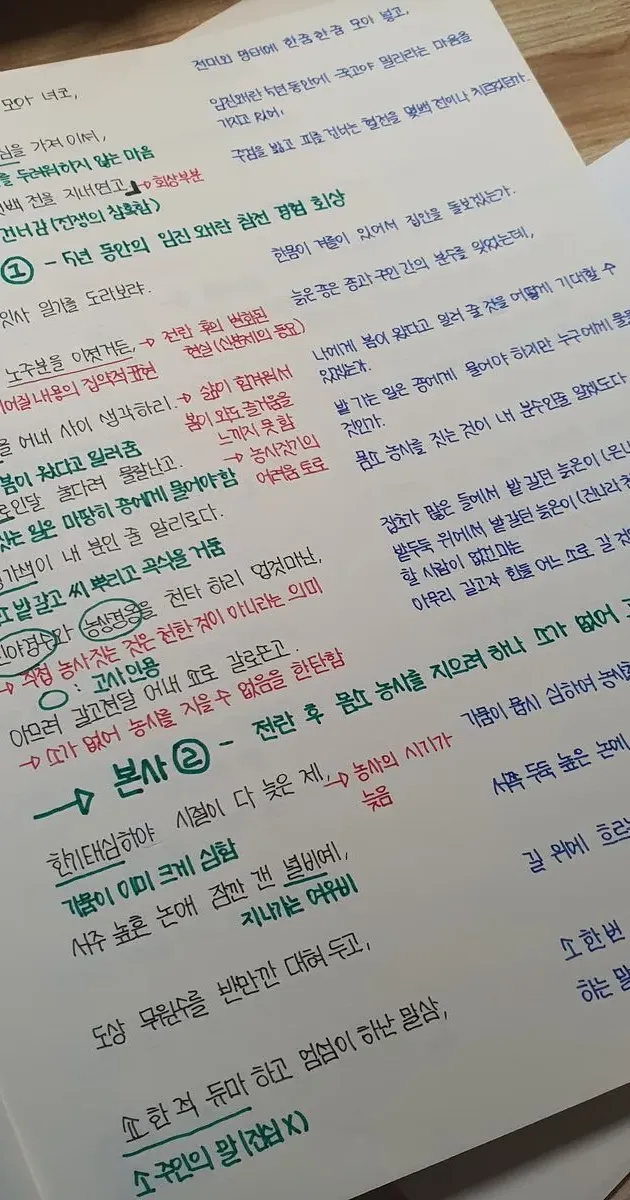 전미와 망태에 한줌한줌 모아 넣고,
모아 녀코,
임진왜란 5년 동안에 죽고야 말리라는 마음을
가지고 있어,
심을 가져 이셔,
를 두려워하지 않는 마음
주검을 밟고 피를 건너는 혈전을 몇백 전이나 치르었던가.
백 전을 지내연고 → 회상부분
건너감 (전쟁의 참혹함)
① - 5년 동안의 임진왜란 참전 경험 회상
한몸이 겨를이 있어서 집안을 돌보겠는가.
잇사 일가를 도라보랴.
늙은 종은 종과 주인 간의 분수를 잊었는데,
노주분을 이젓거든, → 전란 후의 변화된
현실(신분제의 동요)
이어질 내용의 집약적 표현
나에게 봄이 왔다고 일러 줄 것을 어떻게 기대할 수
있겠는가.
을 어내 사이 생각하리. → 삶이 힘겨워서
봄이 와도 즐거움을
느끼지 못함
봄이 왔다고 일러줌
밭 가는 일은 종에게 물어야 하지만 누구에게 물을
것인가.
로인달 눌다려 물랄난고. → 농사짓기의
어려움 토로
짓는 일은 마땅히 종에게 물어야 함
몸소 농사를 짓는 것이 내 분수인줄 알겠도다
가색이 내 분인 줄 알리로다.
소 밭 갈고 씨 뿌리고 곡식을 거둠
잡초가 많은 들에서 밭 갈던 늙은이
밭두둑 위에서 밭 갈던 늙은이
할 사람이 없건마는
야경수와 농상경옹을 천타 하리 업것마난,
→ 직접 농사짓는 것은 천한 것이 아니라는 의미
○ : 고사 인용
아무리 갈고자 한들 어느 소로 갈
아므려 갈고젼달 어내 쇼로 갈로뜬고.
→ 소가 없어 농사를 지을 수 없음을 한탄함
→ 본사 ② - 전란 후 몸소 농사를 지으려 하나 소가 없어
가뭄이 몹시 심하여 농사
한기태심하야 시절이 다 늦은 제, → 농사의 시기가
늦음
가뭄이 이미 크게 심함
서쪽 두둑 높은 논에
서주 높흔 논애 잠깐 갠 녈비예,
지나가는 여우비
길 위에
도상 무원수를 반만깐 대혀 두고,
소 한 번
하는 말
쇼 한 적 듀마 하고 엄섬이 하난 말삼,
소 주인의 말 (진심X)